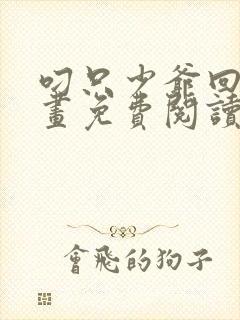 叼只少爺回
畫免費閱讀
會飛的狗子